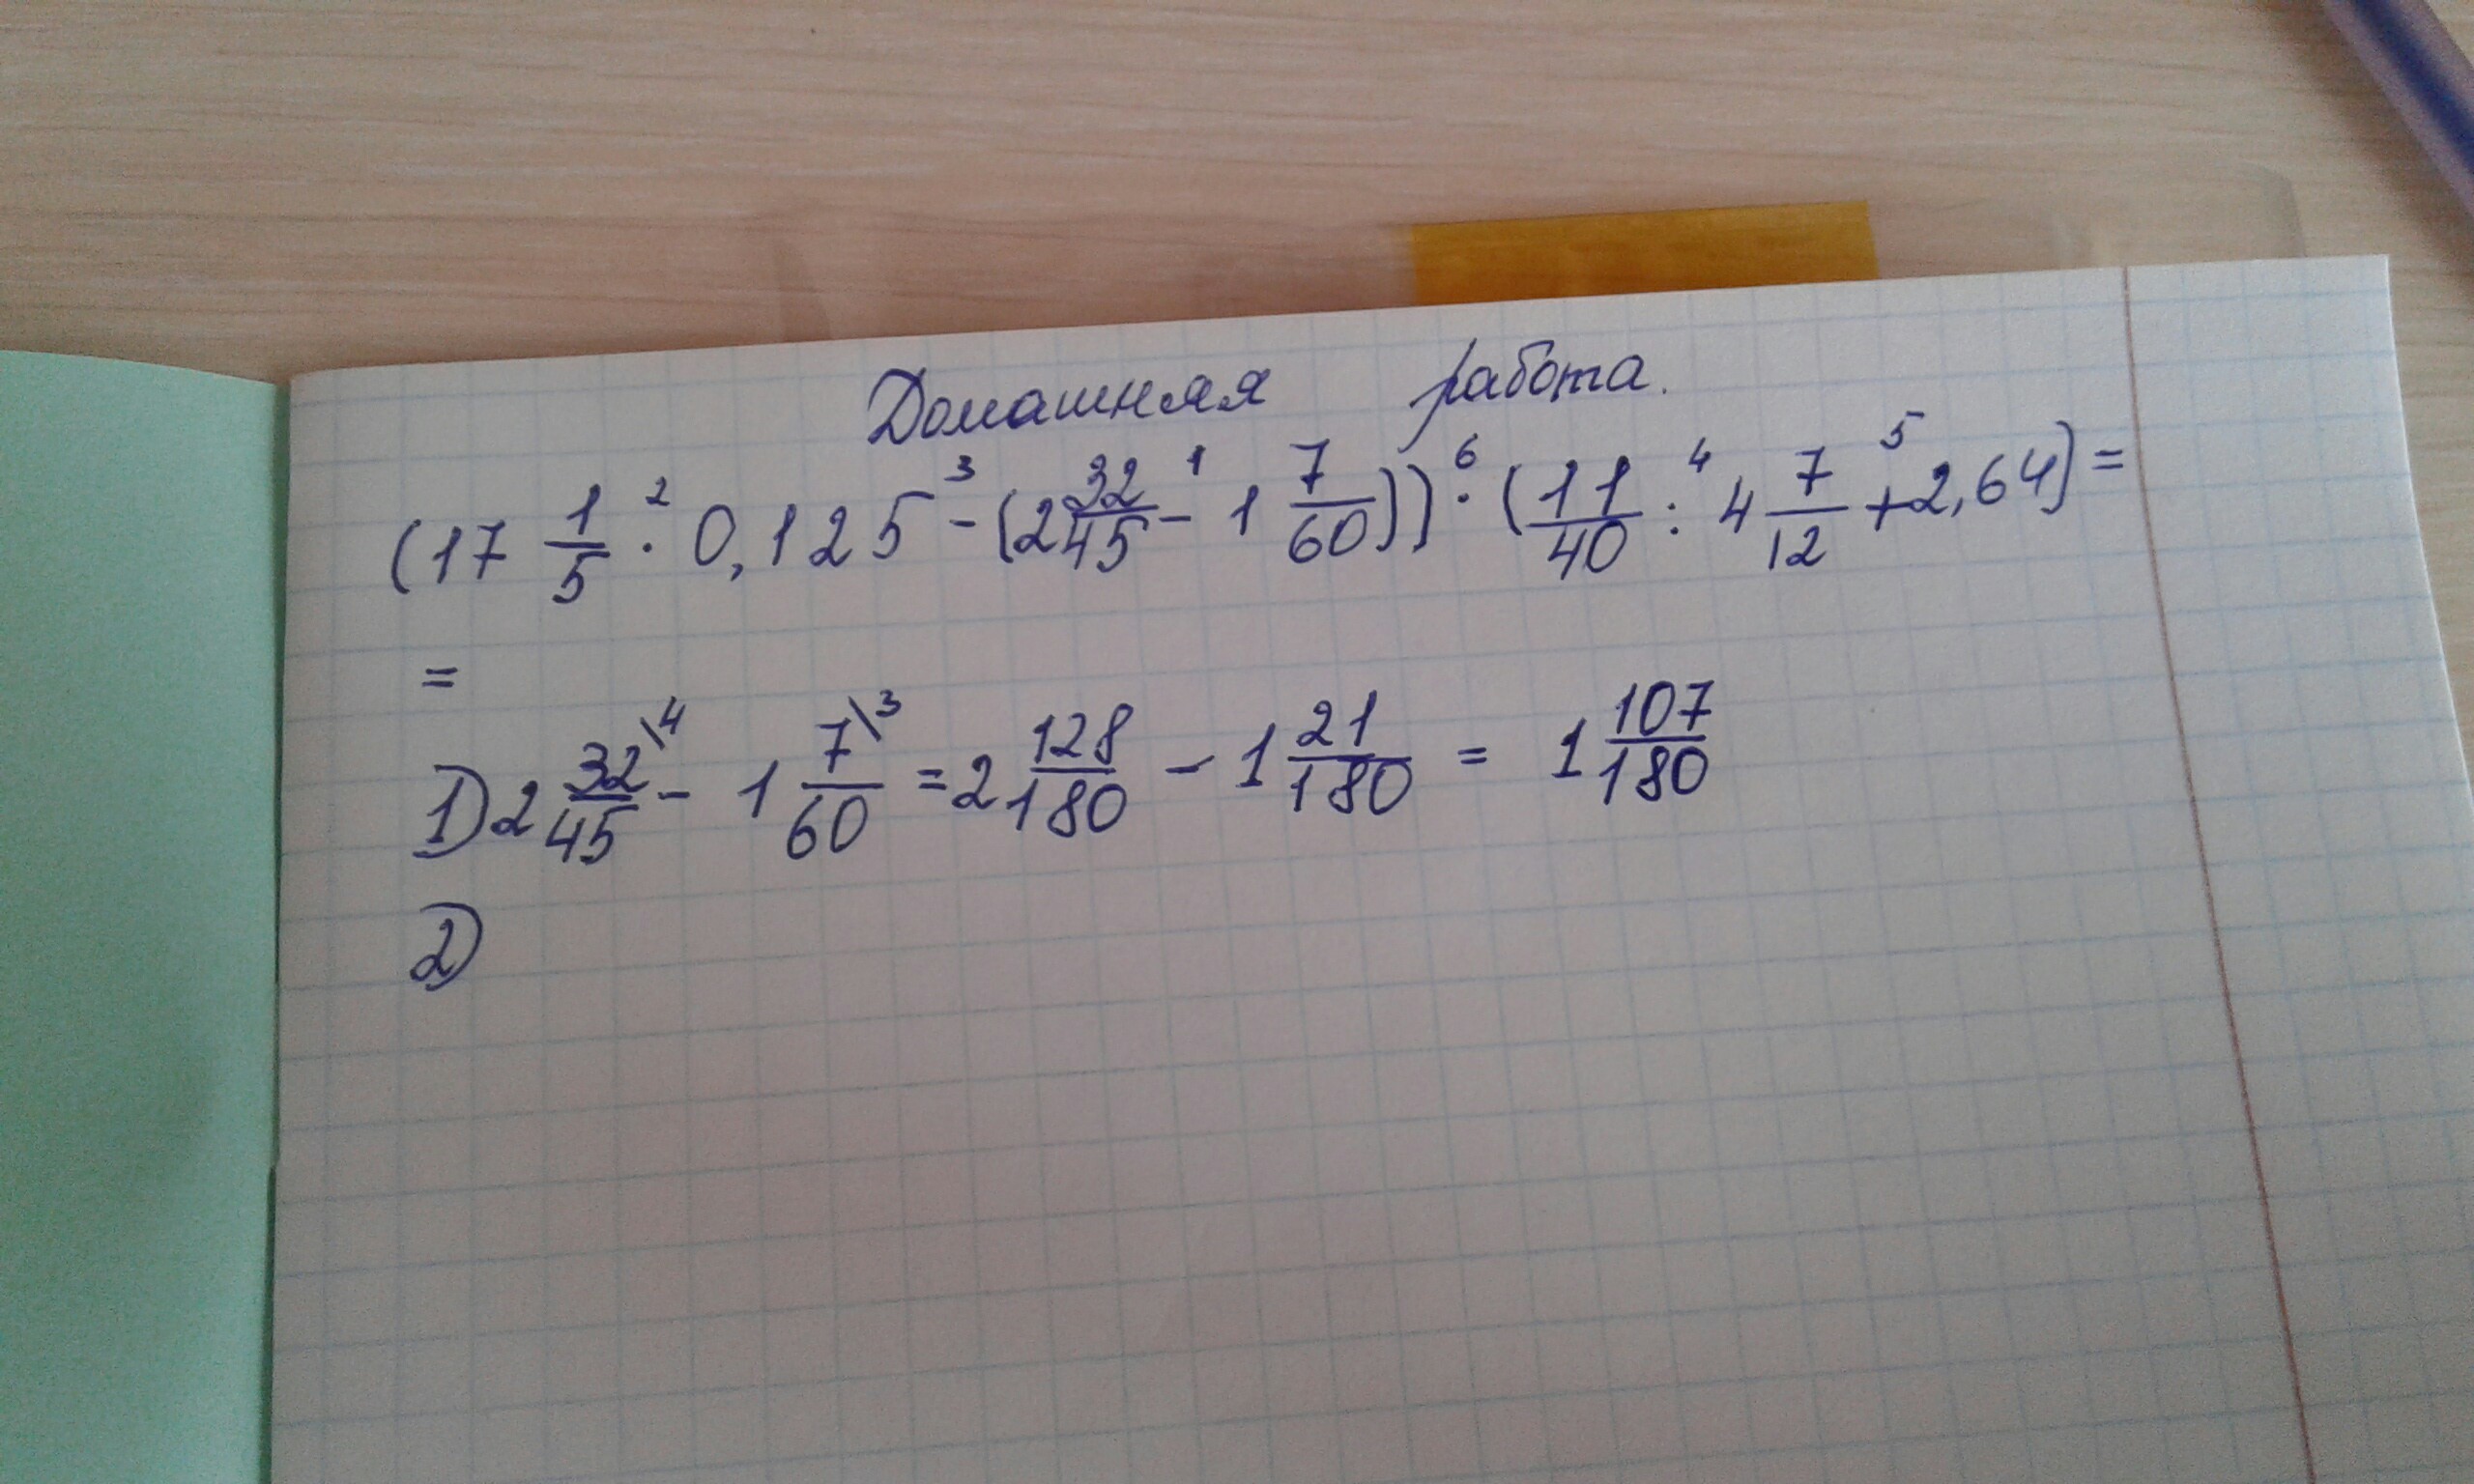 Домашняя работа.
(17 1/5 ·² 0,125 -³ (2 32/45 -¹ 1 7/60)) ·⁶ (11/40 :⁴ 4 7/12 +⁵ 2,64) =
=
1) 2 32\4/45 - 1 7\3/60 = 2 128/180 - 1 21/180 = 1 107/180
2)